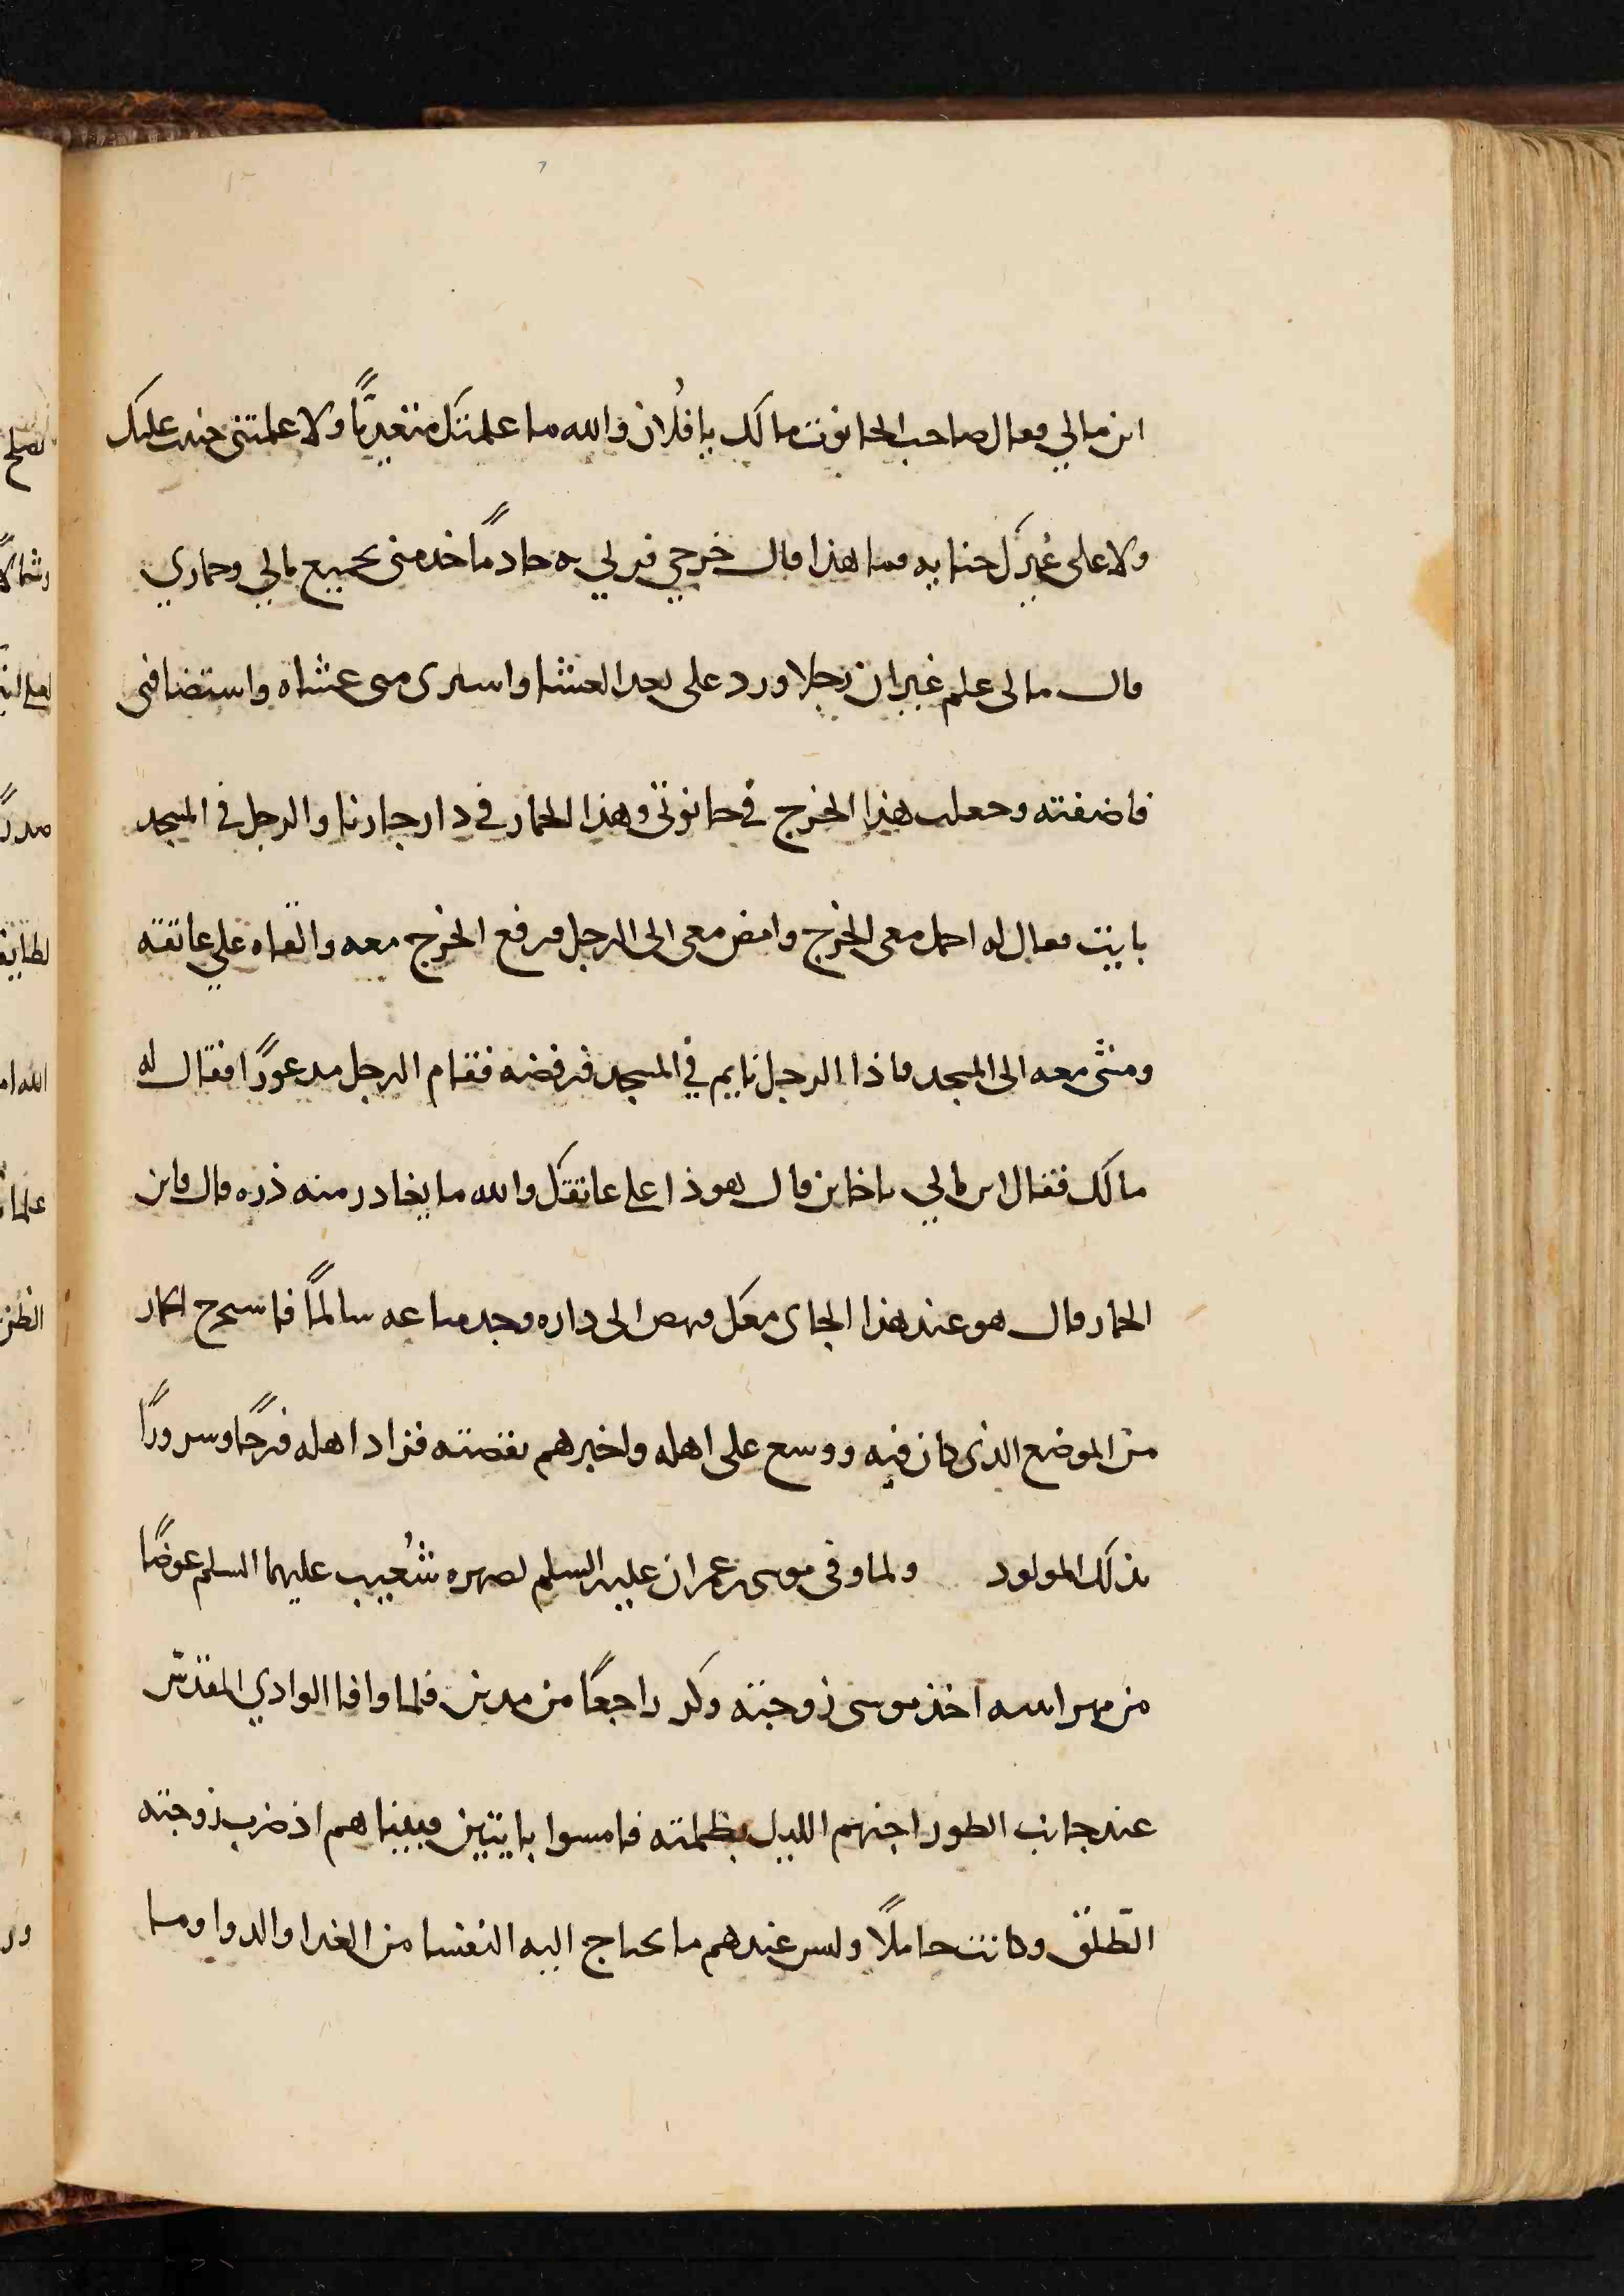 اين مالي فقال صاحب الحانوت مالك يا فُلان والله ما علمتك متعديًا ولا علمتني جنيت عليك
ولا على غيرك جنايه فما هذا قال خرجي هرب به خادمًا خدمني بجميع مالي وحماري
قال مالى علم غير ان رجلا ورد على بعد العشا واشترى مني عشاه واستضافنى
فاضفته وجعلت هذا الخرج في حانوتي وهذا الحمار في دار جارنا والرجل في المسجد
بايت فقال له احمل معى الخرج وامض معى الى الرجل فرفع الخرج معه والقاه علي عاتقه
ومشى معه الى المسجد فاذا الرجل نايم في المسجد فرفضه فقام الرجل مدعورًا فقال له
مالك فقال اين مالي يا خاين قال هو ذا على عاتقك والله ما يغادر منه ذره قال فاين
الحمار قال هو عند هذا الجاى معك فنهض الى داره وجد متاعه سالمًا فاستخرج الحمار
من الموضع الذى كان فيه ووسع على اهله واخبرهم بقصته فزاد اهله فرحًا وسرورًا
بذلك المولود ولما وفى موسى بن عمران عليه السلم لصهره شُعيب عليهما السلم عوضًا
من مهر ابنته اخذ موسى زوجته وكر راجعًا من مدين فلما وافا الوادي المقدّس
عند جانب الطور اجنهم الليل بظلمته فامسوا بايتين فبيناهم اذ ضرب زوجته
الطّلق وكانت حاملًا وليس عندهم ما يحتاج اليه النفسا من الغدا والدوا وما